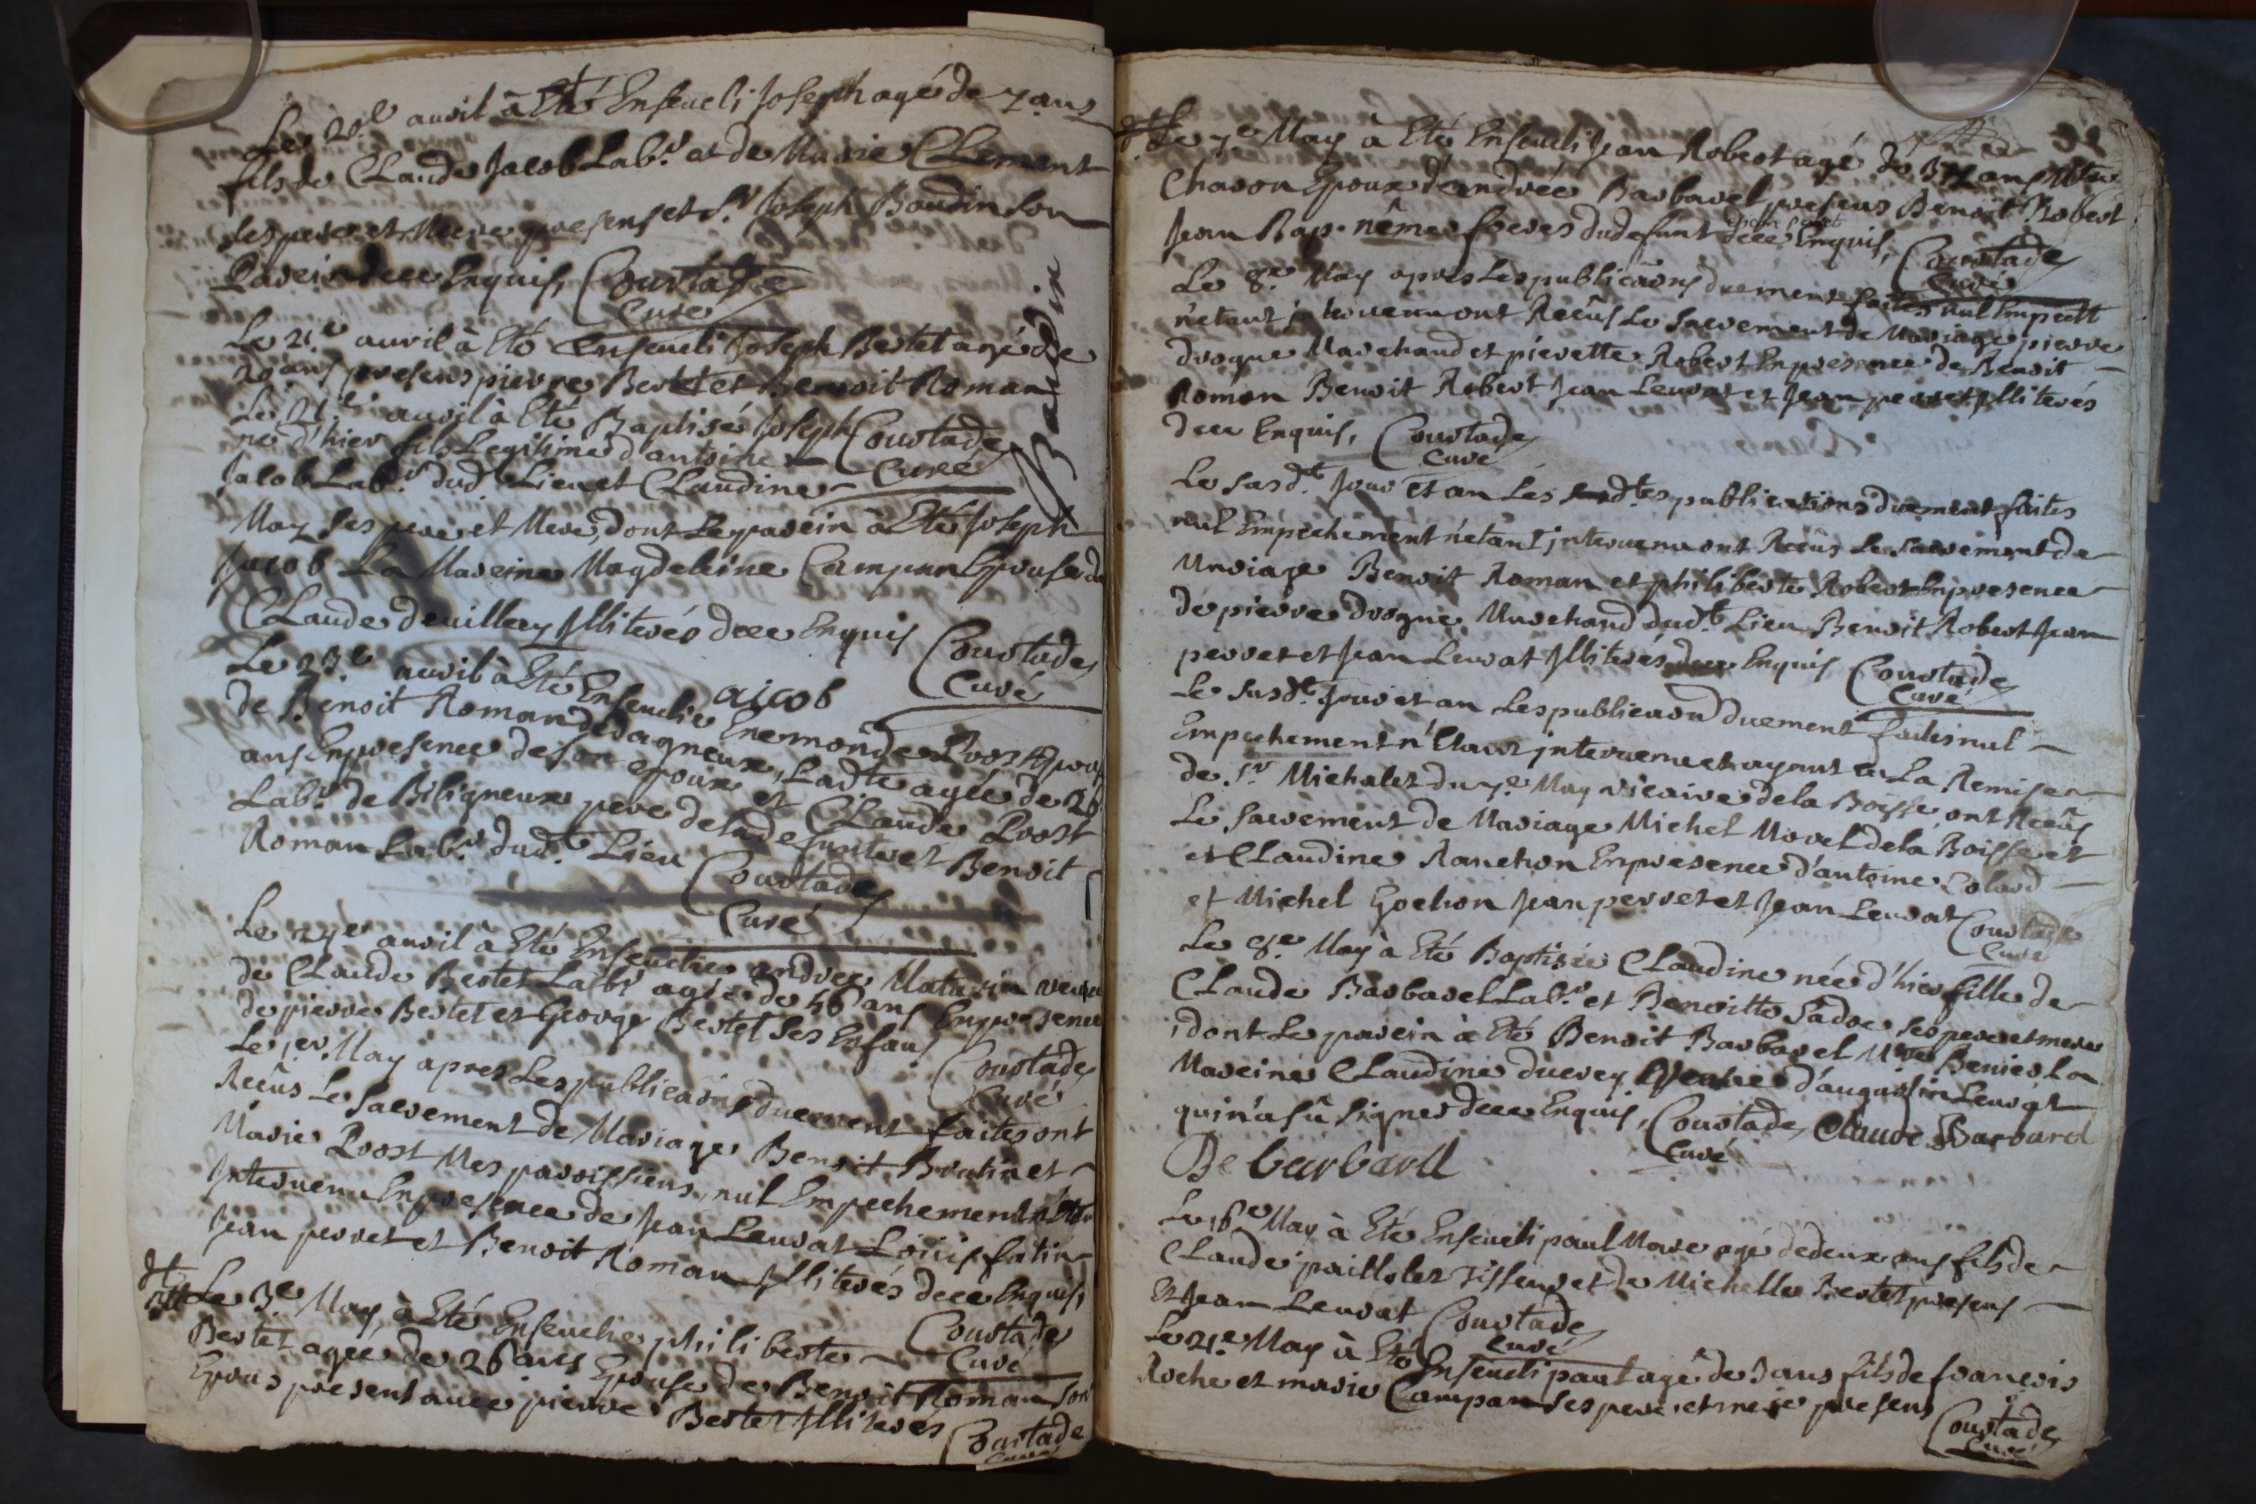 Le 20.e avril à Eté Enseveli Joseph agé de 7 ans
fils de Claude Jacob Lab.r et de Marie Clement
ses pere et Mere presens et S.r Joseph Baudin son
Parein dece Enquis, Coustade
Curé
Baudin
Le 21.e avril à Eté Enseveli Joseph Bertet agé de
ans presens pierre Bertet et Benoit Roman
Le 21.e avril à Eté Baptisé Joseph Coustade
né d'hier fils Legitime d'antoine Curé
Jacob Lab.r dud.t Lieu et Claudine
May ses pere et Mere, dont Le parein à Eté Joseph
Jacob La Mareine Magdeleine Campan Epouse de
Claude devillery Illiterés dece Enquis Coustade
Curé
Le 23.e avril à Eté Ensevelie Enemonde Prost Epouse
aicob
de Benoit Roman de agneux, Ladte agée de 26
ans Enpresence de son epoux et Claude Prost
Lab.r de Biligneux pere de lade funte et Benoit
Roman Lab.r dud.t Lieu Coustade
Curé
Le 27e avril à Eté Ensevelie andree Maturin veuve
de Claude Bertet Labr agée de 46 ans Enpresence
de pierre Bertet et George Bertet ses Enfans Coustade
Curé
Le 1.er May apres Les publicaõns duement faites ont
Reçûs Le Sacrement de Mariage Benoit et
Marie Prost Mes paroissiens, nul Empechement n'étant
Intervenu Enpresence de Jean Leurat Loüis fatin
Jean perret et Benoit Roman Illiterés dece Enquis,
Coustade
Curé
Le 3.e May à Eté Ensevelie philiberte
Bertet agée de 26 ans Epouse de Benoit Roman son
Epoux present avec pierre Bertet Illiterés Coustade
Curé
Le 7.e May à Eté Enseveli Jean Robert agé de ans Mtre
Charon Epoux d'andrée Barbaret presens Benoit Robert
Jean Bap. nême freres dudefunt Jean perret dece Enquis, Coustade
Curé
Le 8.e May apres Les publicaõns duement faites nul Empecht
n'etant intervenu ont Reçûs Le Sacrement de Mariage pierre
drogue Marchand et pierette Robert Enpresence de Benoit
Roman Benoit Robert Jean Leurat et Jean perret Illiterés
dece Enquis, Coustade
Curé
Le susd.t Jour et an Les susd.tes publications duement faites
nul Empechement n'etant intervenu ont Reçûs Le Sacrement de
Mariage Benoit Roman et philiberte Robert Enpresence
de pierre drogue Marchand dud.t Lieu Benoit Robert Jean
perret et Jean Leurat Illiterés dece Enquis Coustade
Curé
Le susd.t Jour et an Les publicaõn duement faites nul
Empechement n'Etant intervenu et ayant eu La Remise
de S.r Michalet du 7.e May vicaire de la Boisse ont Reçûs
Le Sacrement de Mariage Michel Morel de la Boisse et
et Claudine Ranchon Enpresence d'antoine Colard
et Michel Gochon Jean perret et Jean Leurat Coustade
Curé
Le 9.e May à Eté Baptisée Claudine née d'hier fille de
Claude Barbaret Lab.r et Benoitte Sadoc ses pere et mere
, dont Le parein à Eté Benoit Barbaret La
Mareine Claudine ducrey veuve d'augustin Leurat
quin'a sû signer dece Enquis, Coustade Claude Barbaret
Curé
Be barbarett
Le 18e May à Eté Enseveli paul Marc agé de deux ans fils de
Claude paillolet Tisseur et de Michelle Bertet presens
et Jean Leurat Coustade
Curé
Le 21.e May à Eté Enseveli paul agé de 3 ans fils de françois
Roche et marie Campan ses pere et mere presens Coustade
Curé